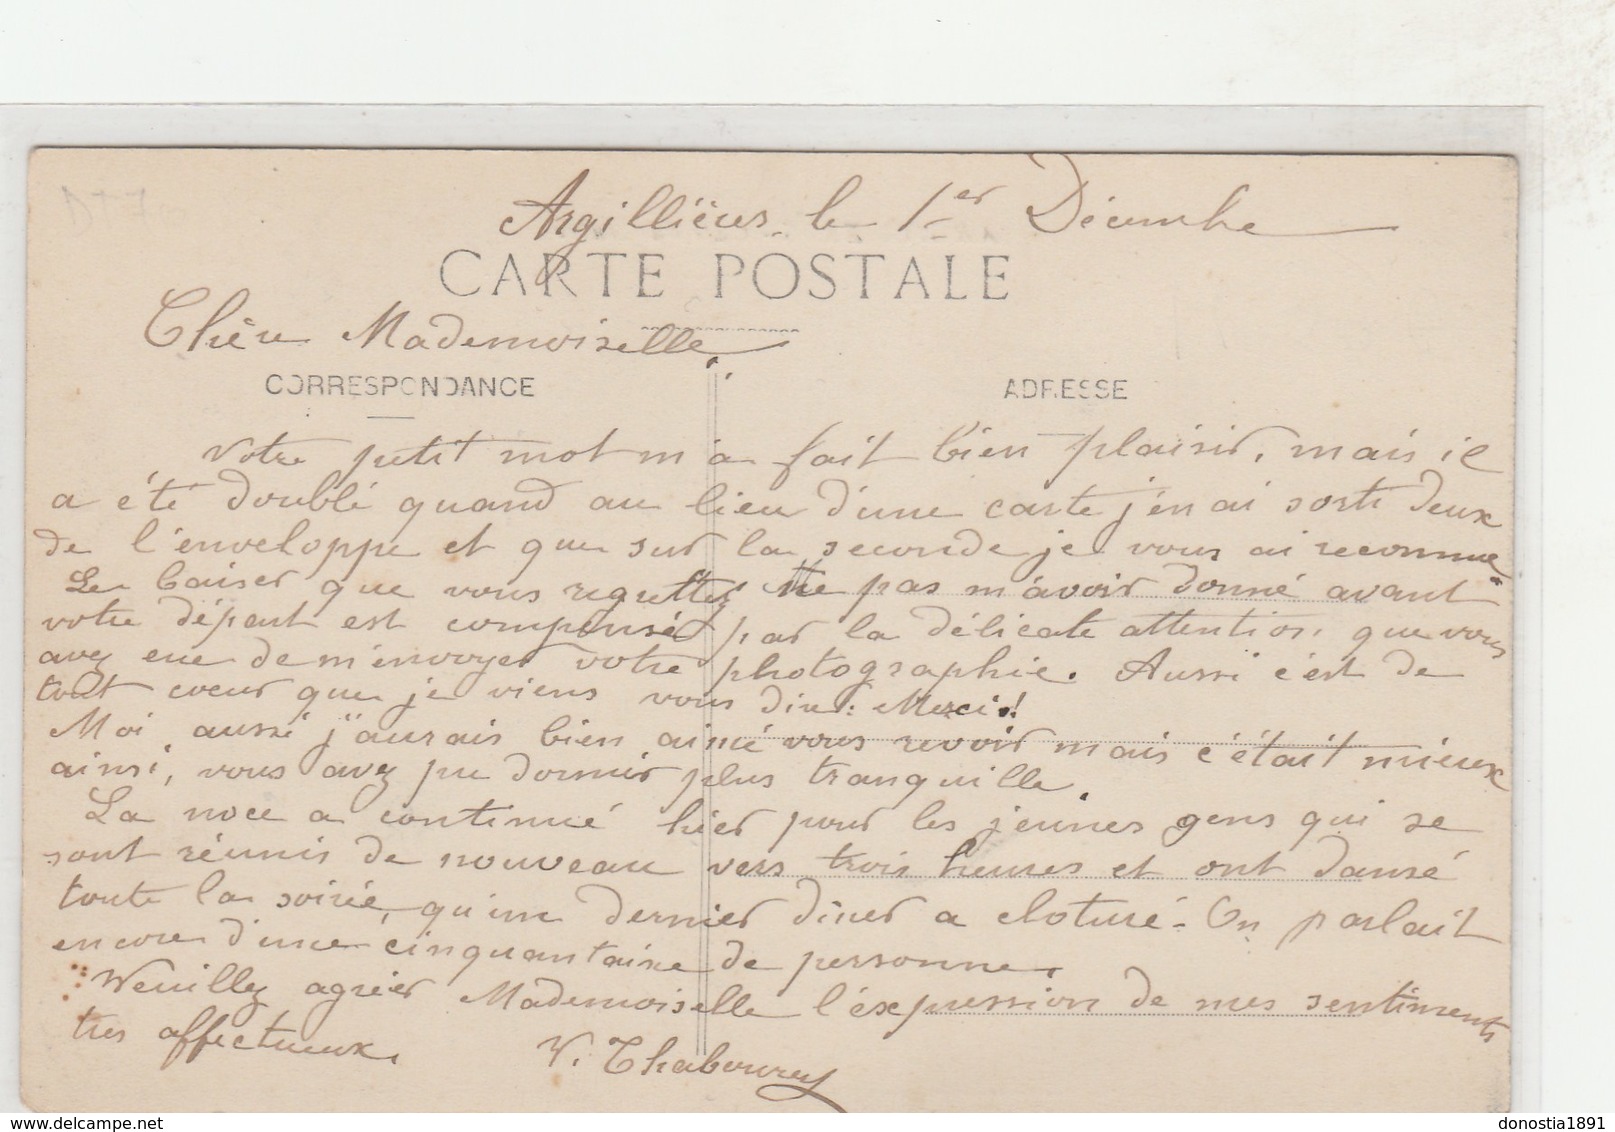 Argillières le 1er Décembre
CARTE POSTALE
Chère Mademoiselle
CORRESPONDANCE
ADRESSE
Votre petit mot m'a fait bien plaisir, mais il
a été doublé quand au lieu d'une carte j'en ai sorti deux
de l'enveloppe et que sur la seconde je vous ai reconnue.
Le baiser que vous regrettez ne pas m'avoir donné avant
votre départ est compensé par la délicate attention que vous
avez eue de m'envoyer votre photographie. Aussi c'est de
tout coeur que je viens vous dire : Merci !
Moi aussi j'aurais bien aimé vous revoir mais c'était mieux
ainsi, vous avez pu dormir plus tranquille.
La noce a continué hier pour les jeunes gens qui se
sont réunis de nouveau vers trois heures et ont dansé
toute la soirée, qu'un dernier diner a cloturé - On parlait
encore d'une cinquantaine de personne.
Veuillez agréer Mademoiselle l'expression de mes sentiments
très affectueux.
V. Thabourey
delcampe.net
donostia1891